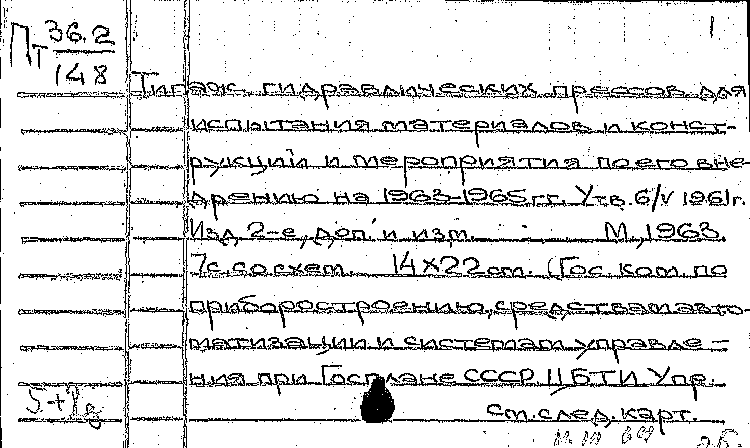 Пт 36.2
148
1
Типаж гидравлических прессов для
испытания материалов и конст-
рукций и мероприятия по его вне-
дрению на 1963-1965 гг. Утв. 6/V 1961г.
Изд. 2-е, доп. и изм. М., 1963.
7с. со схем. 14х22 см. (Гос. ком. по
приборостроению, средствам авто-
матизации и системам управле-
ния при Госплане СССР. ЦБТИ. Упр.
см. след. карт.